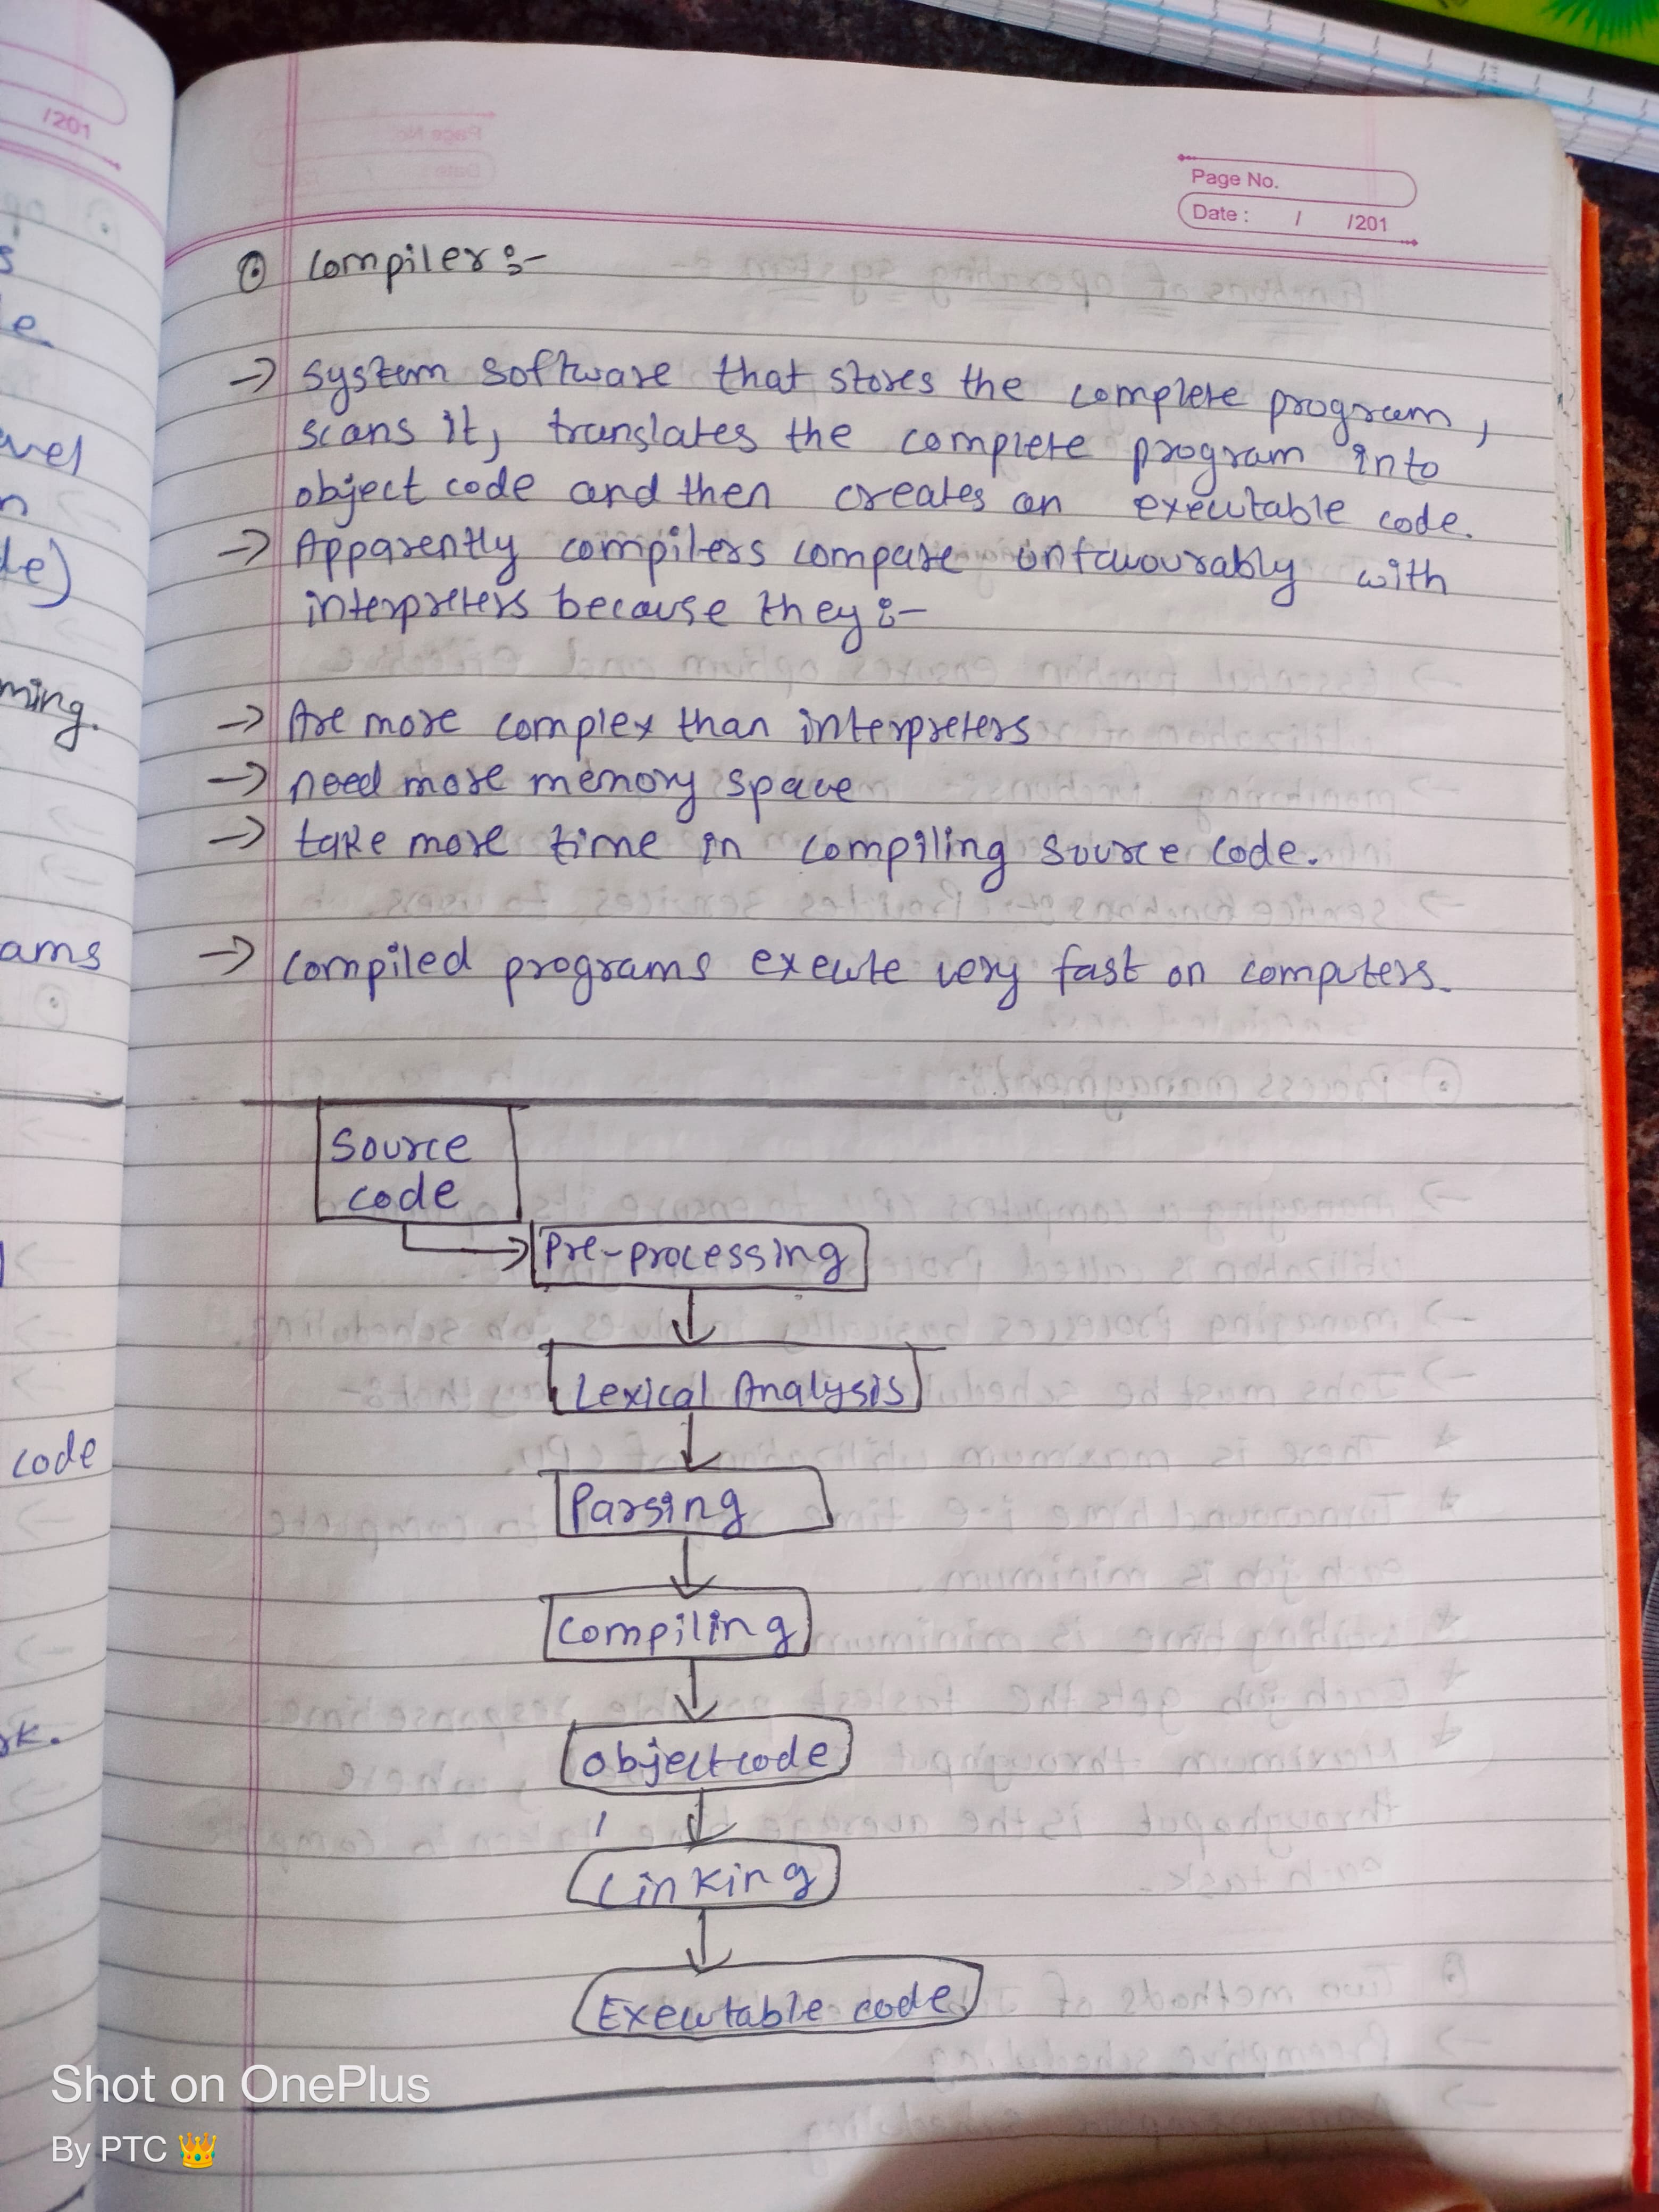 /201
Page No.
Date : / /201
Compiler :-
→ System software that stores the complete program,
scans it, translates the complete program into
object code and then creates an executable code.
→ Apparently compilers compare unfavourably with
interpreters because they :-
→ Are more complex than interpreters
→ need more memory space
→ take more time in compiling source code.
→ compiled programs execute very fast on computers.
Source
code
Pre-processing
Lexical Analysis
Parsing
Compiling
Object code
Linking
Executable code
ming.
ams
code
Shot on OnePlus
By PTC 👑